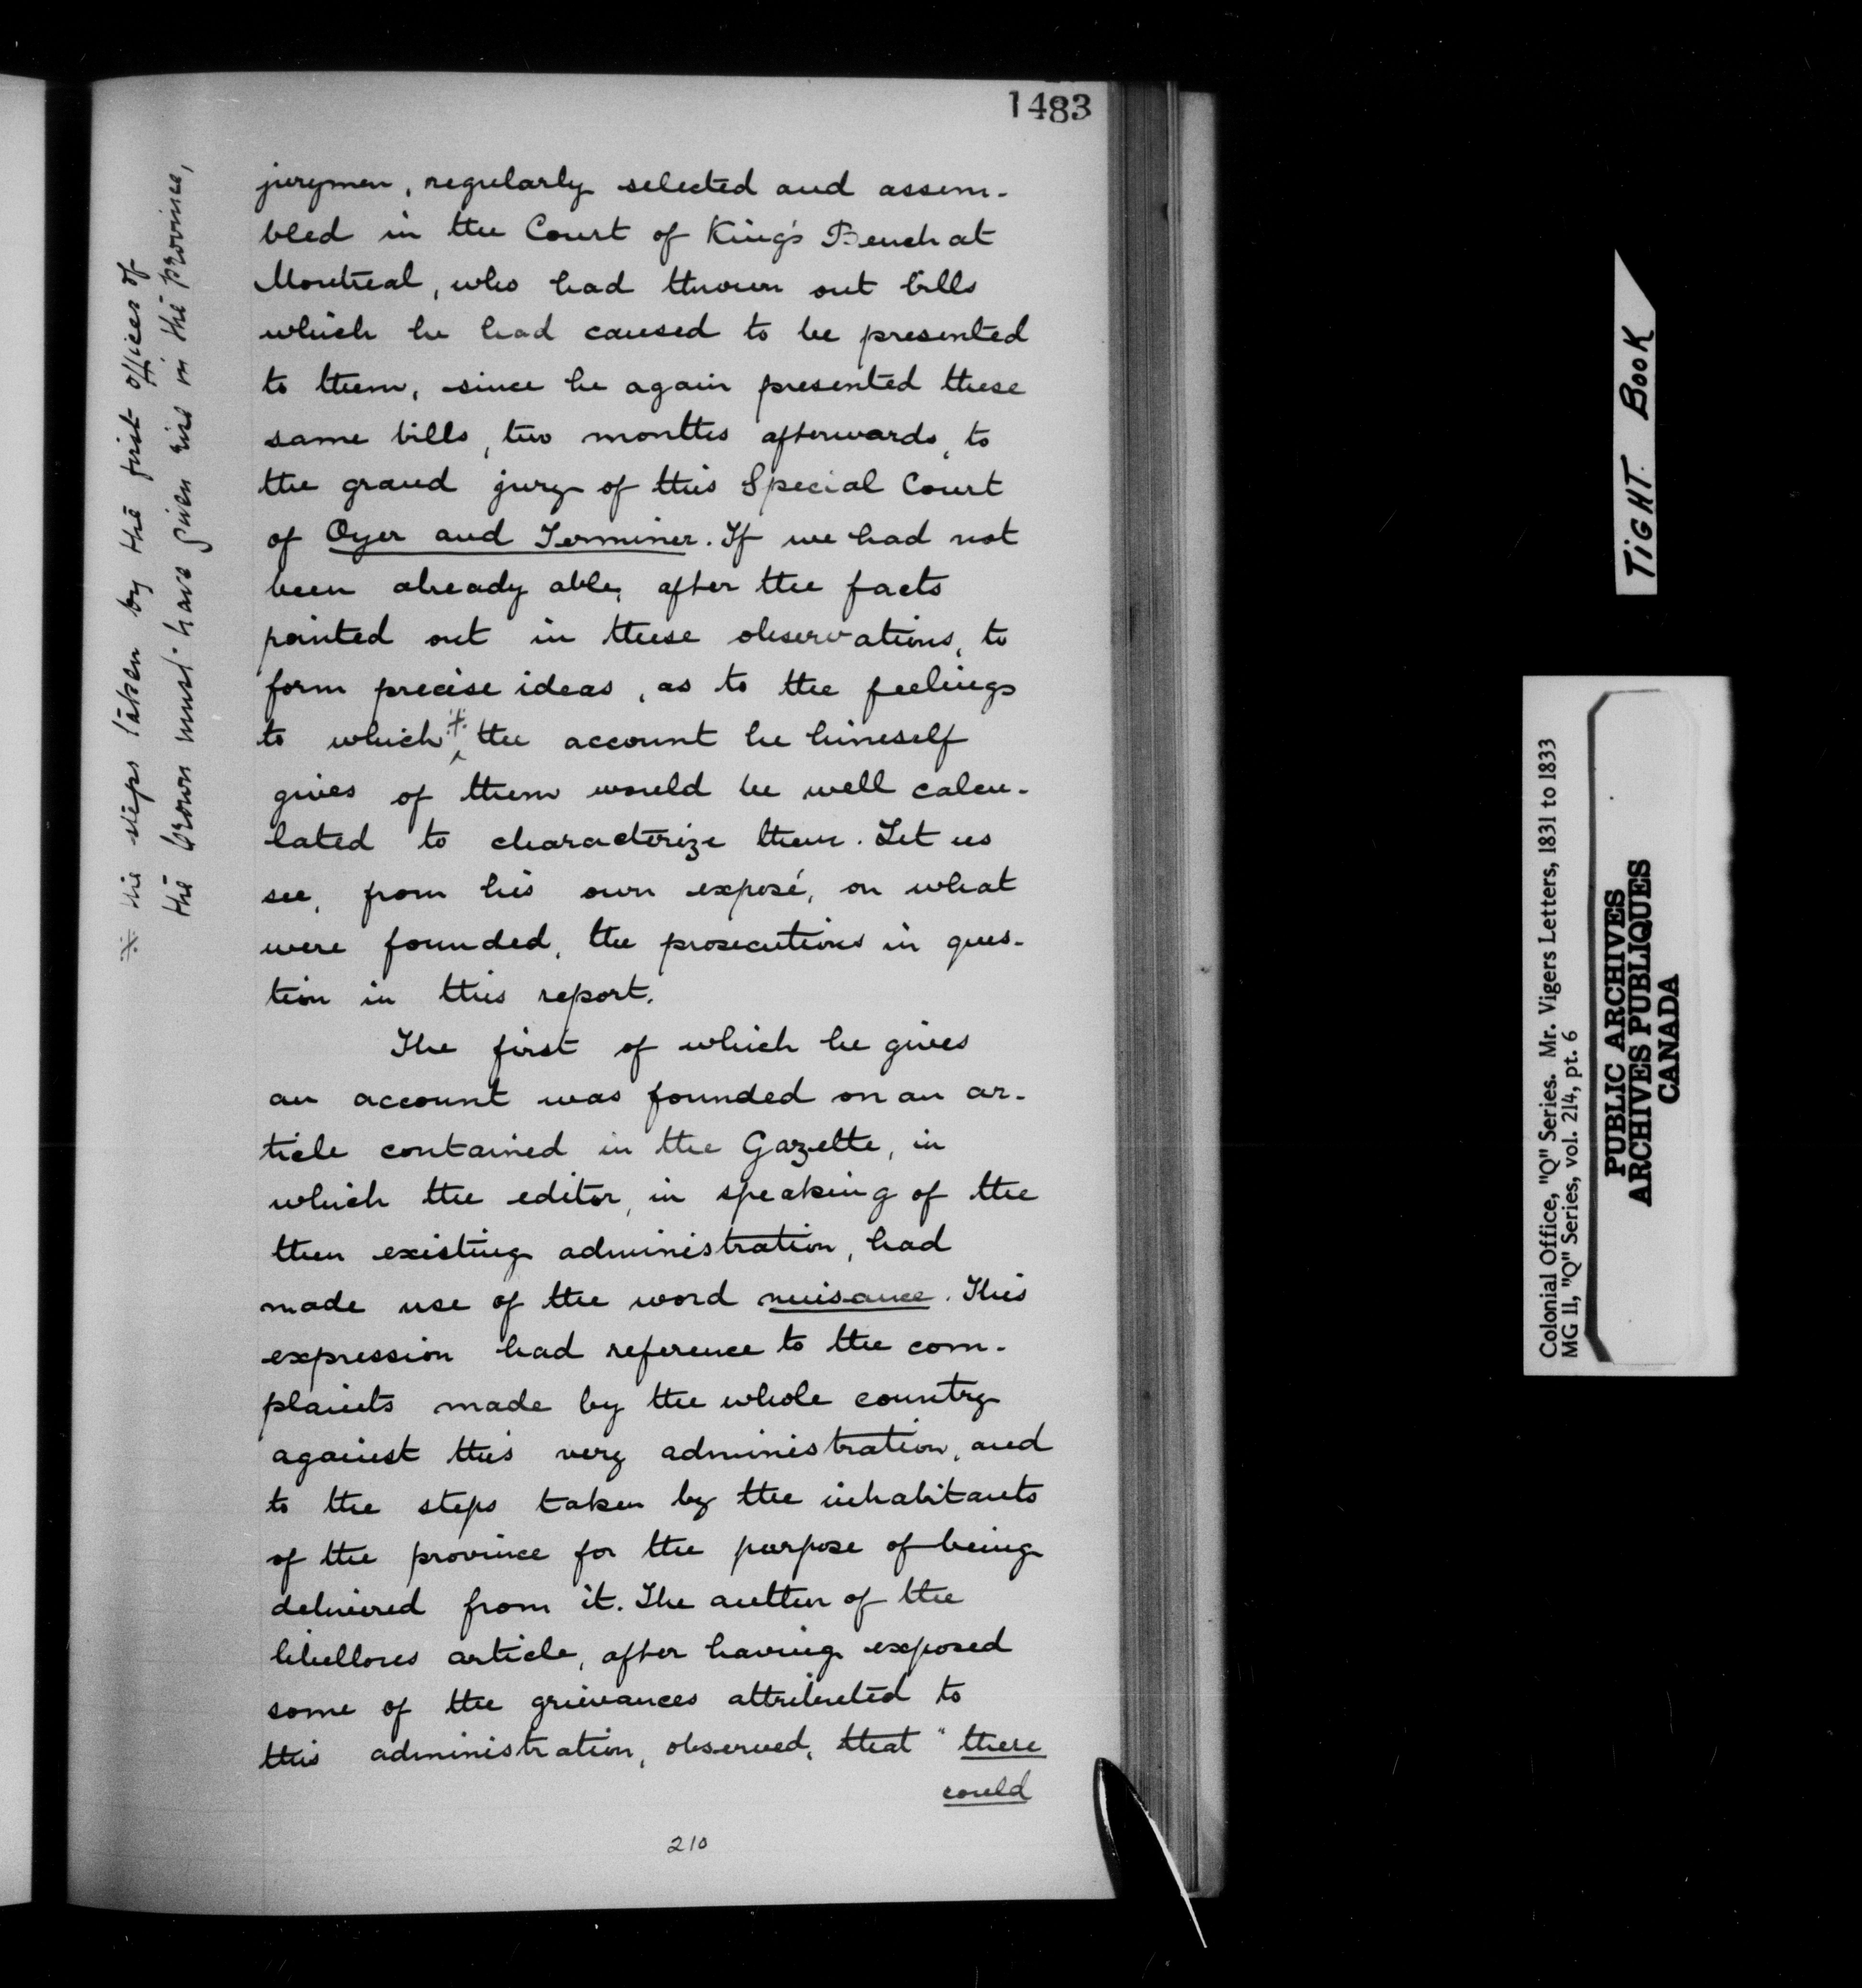 1483
jurymen, regularly selected and assem-
bled in the Court of King's Bench at
Montreal, who had thrown out bills
which he had caused to be presented
to them, since he again presented these
same bills, two months afterwards, to
the grand jury of this Special Court
of Oyer and Terminer. If we had not
been already able, after the facts
pointed out in these observations, to
form precise ideas, as to the feelings
to which ※ the account he himself
gives of them would be well calcu-
lated to characterize them. Let us
see, from his own exposé, on what
were founded, the prosecutions in ques-
tion in this report.
The first of which he gives
an account was founded on an ar-
ticle contained in the Gazette, in
which the editor, in speaking of the
then existing administration, had
made use of the word nuisance. This
expression had reference to the com-
plaints made by the whole country
against this very administration, and
to the steps taken by the inhabitants
of the province for the purpose of being
delivered from it. The author of the
libellous article, after having exposed
some of the grievances attributed to
this administration, observed, that "there
could
210
※ the steps taken by the first officer of
the Crown must have given rise in the province,
TIGHT BOOK
Colonial Office, "Q" Series. Mr. Vigers Letters, 1831 to 1833
MG 11, "Q" Series, vol. 214, pt. 6
PUBLIC ARCHIVES
ARCHIVES PUBLIQUES
CANADA